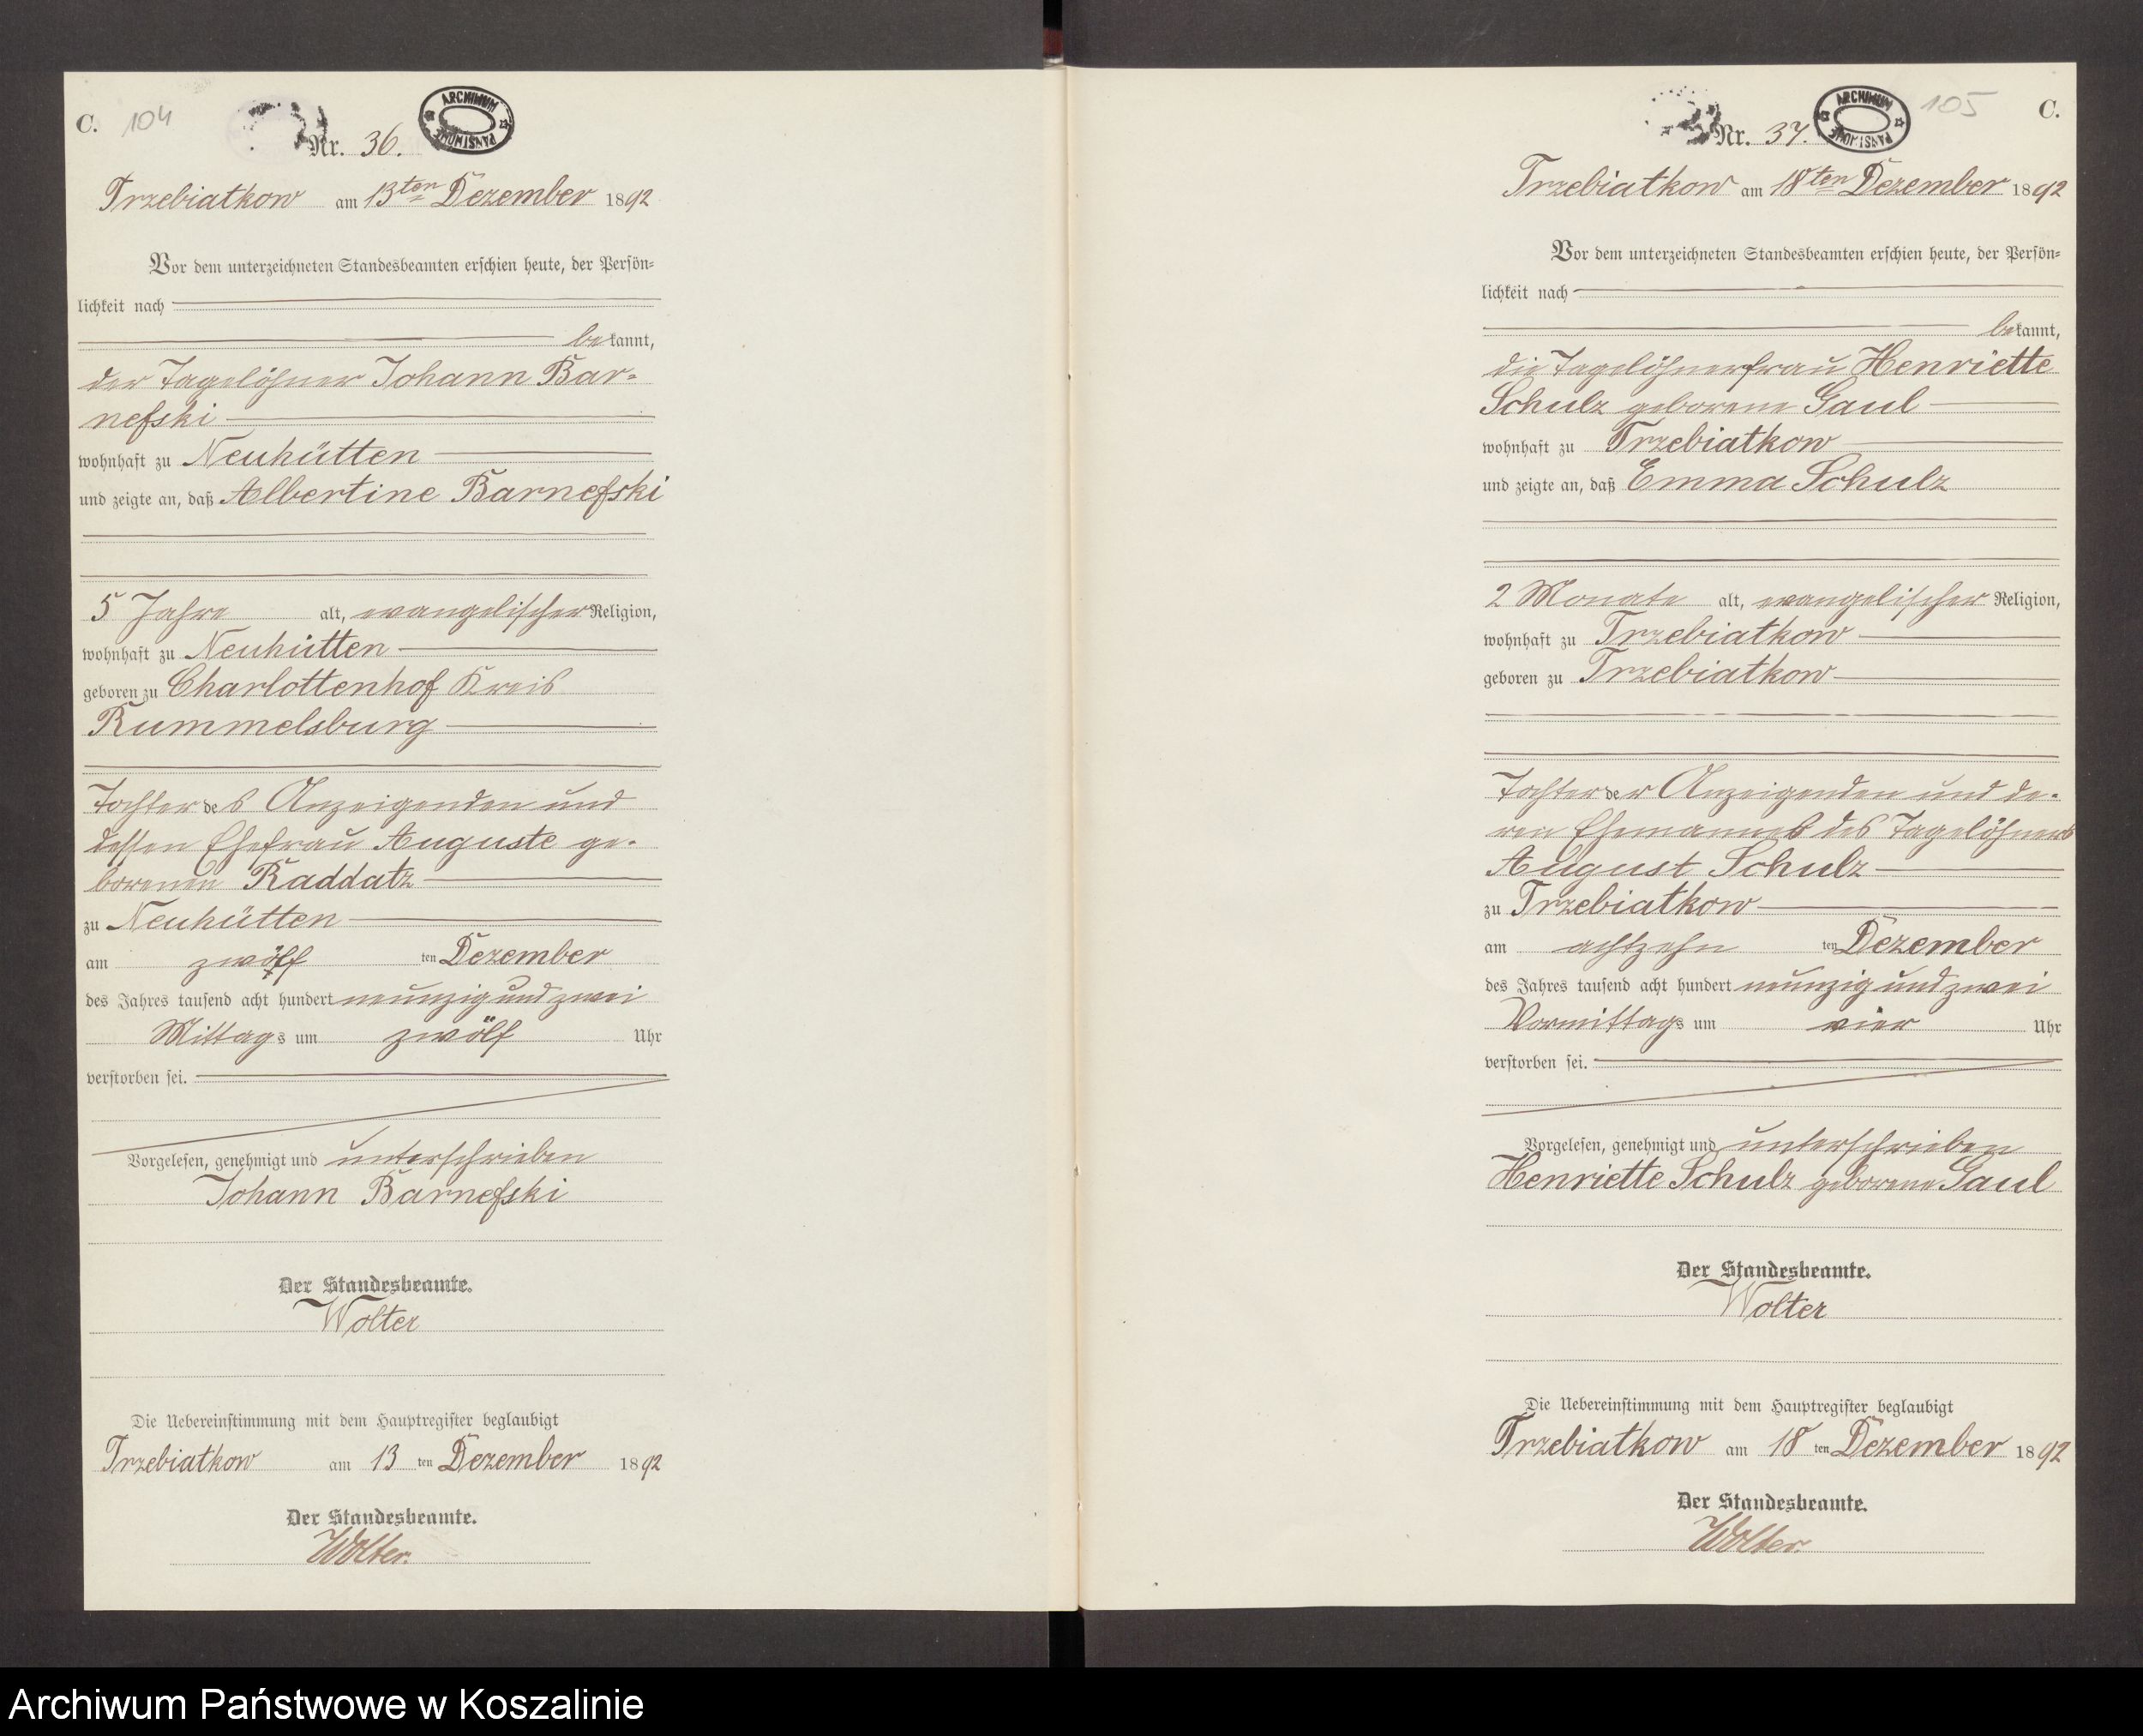 C. 104
Nr. 36.
ARCHIWUM PAŃSTWOWE
Trzebiatkow am 13ten Dezember 1892
Vor dem unterzeichneten Standesbeamten erschien heute, der Persön=
lichkeit nach
bekannt,
der Tagelöhner Johann Bar-
nefski
wohnhaft zu Neuhütten
und zeigte an, daß Albertine Barnefski
5 Jahre alt, evangelischer Religion,
wohnhaft zu Neuhütten
geboren zu Charlottenhof Kreis
Rummelsburg
Tochter des Anzeigenden und
dessen Ehefrau Auguste ge-
borenen Raddatz
zu Neuhütten
am zwölf ten Dezember
des Jahres tausend acht hundert neunzig und zwei
Mittags um zwölf Uhr
verstorben sei.
Vorgelesen, genehmigt und unterschrieben
Johann Barnefski
Der Standesbeamte.
Wolter
Die Uebereinstimmung mit dem Hauptregister beglaubigt
Trzebiatkow am 13 ten Dezember 1892
Der Standesbeamte.
Wolter.
105 C.
Nr. 37.
ARCHIWUM PAŃSTWOWE
Trzebiatkow am 18ten Dezember 1892
Vor dem unterzeichneten Standesbeamten erschien heute, der Persön=
lichkeit nach
bekannt,
die Tagelöhnerfrau Henriette
Schulz geborene Gaul
wohnhaft zu Trzebiatkow
und zeigte an, daß Emma Schulz
2 Monate alt, evangelischer Religion,
wohnhaft zu Trzebiatkow
geboren zu Trzebiatkow
Tochter der Anzeigenden und de-
ren Ehemannes des Tagelöhners
August Schulz
zu Trzebiatkow
am achtzehn ten Dezember
des Jahres tausend acht hundert neunzig und zwei
Vormittags um vier Uhr
verstorben sei.
Vorgelesen, genehmigt und unterschrieben
Henriette Schulz geborene Gaul
Der Standesbeamte.
Wolter
Die Uebereinstimmung mit dem Hauptregister beglaubigt
Trzebiatkow am 18 ten Dezember 1892
Der Standesbeamte.
Wolter.
Archiwum Państwowe w Koszalinie